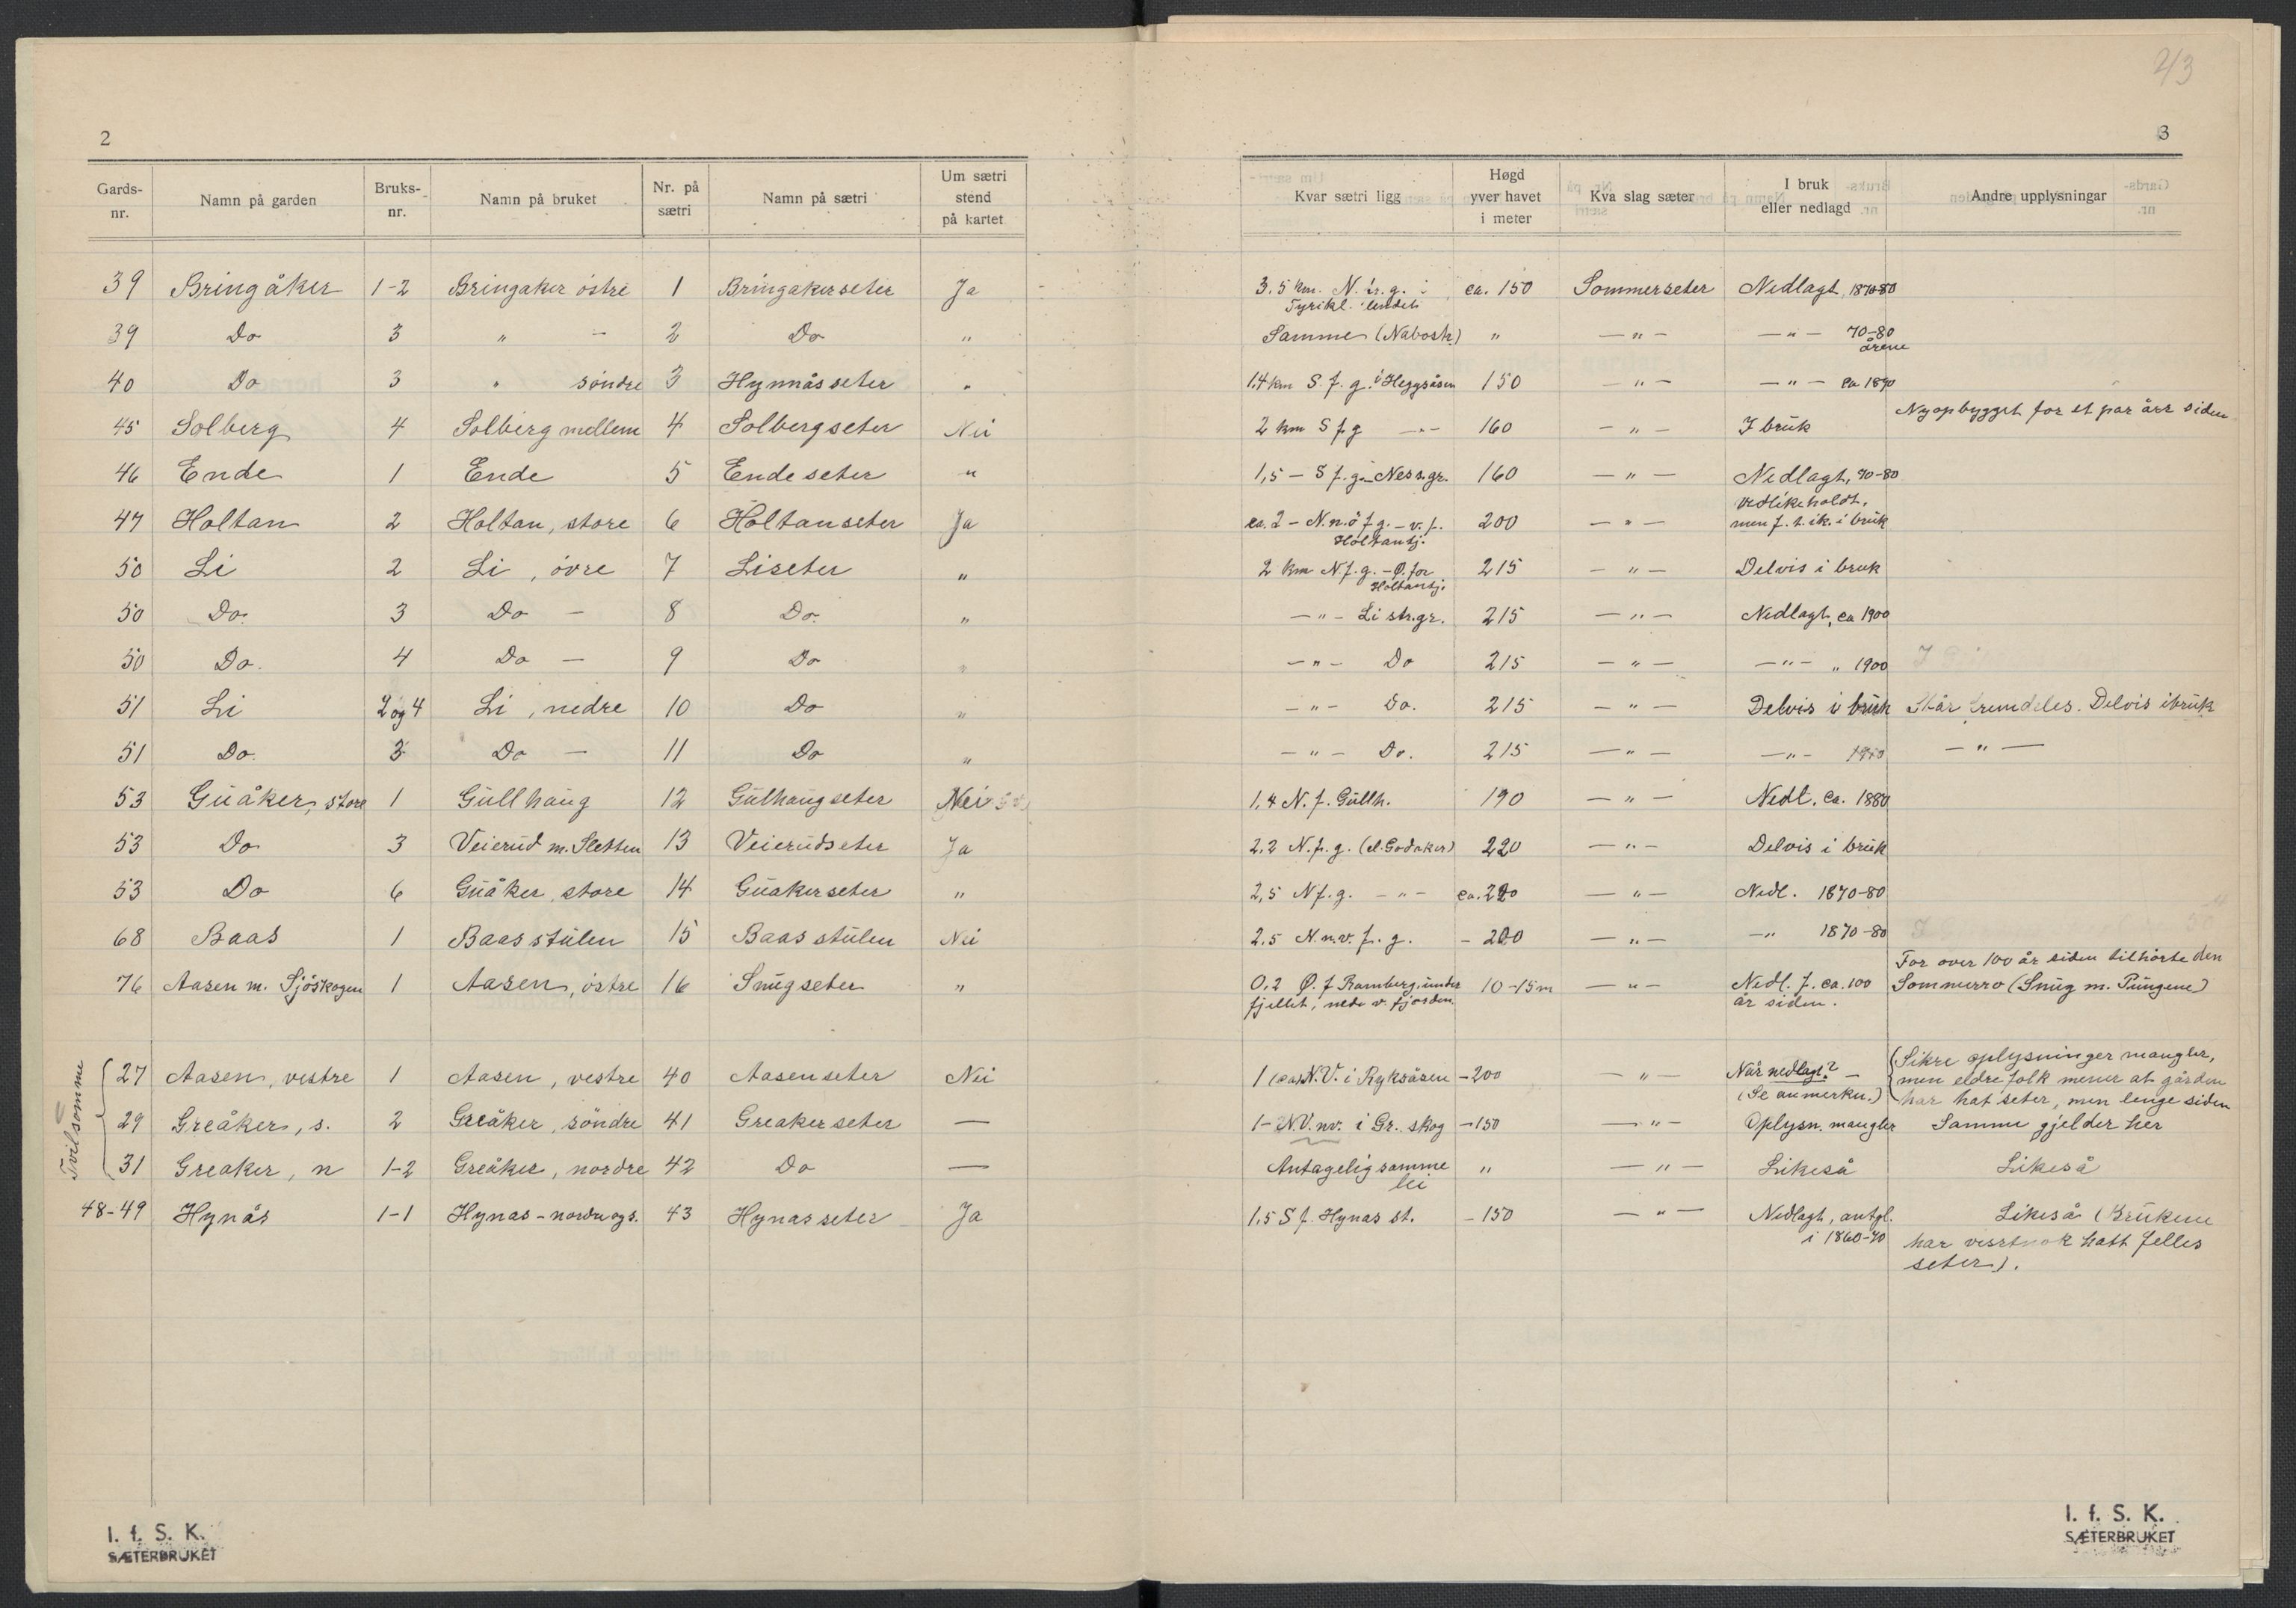 2/3
2
3
Gards-nr. Namn på garden Bruks-nr. Namn på bruket Nr. på sætri Namn på sætri Um sætri stend på kartet Kvar sætri ligg Høgd yver havet i meter Kva slag sæter I bruk eller nedlagd Andre upplysningar
39 Bringåker 1-2 Bringaker østre 1 Bringakerseter Ja 3.5 km. N. f. g. i Tyrikl. lendet ca. 150 Sommerseter Nedlagt 1870-80
39 Do 3 " — 2 Do " Samme (Nabosk.) " — " — — " — 70-80 årene
40 Do 3 " søndre 3 Hynnåsseter " 1.4 km S. f. g. i Heggsåsen 150 — " — — " — ca 1890
45 Solberg 4 Solberg mellem 4 Solbergseter Nei 2 km S f g — " — 160 — " — I bruk Nyopbygget for et par år siden
46 Ende 1 Ende 5 Endeseter " 1,5 — S f. g. Ness.gr. 160 — " — Nedlagt, 70-80
47 Holtan 2 Holtan, store 6 Holtanseter Ja ca. 2 — N.n.ø f g. — v. f. Holtantj. 200 — " — Vedlikeholdt, men f. t. ik. i bruk
50 Li 2 Li, øvre 7 Liseter " 2 km N. f. g. — Ø. for Holtantj. 215 — " — Delvis i bruk
50 Do. 3 Do — 8 Do. " — " — Li str.gr. 215 — " — Nedlagt, ca 1900
50 Do. 4 Do — 9 Do " — " — Do 215 — " — — " — " 1900
51 Li 2 og 4 Li, nedre 10 Do " — " — Do. 215 — " — Delvis i bruk Står fremdeles. Delvis i bruk
51 Do. 3 Do — 11 Do " — " — Do. 215 — " — — " — — " —
53 Guåker, store 1 Gullhaug 12 Gulhaugseter Nei 1,4 N. f. Gullh. 190 — " — Nedl. ca. 1880
53 Do 3 Veierud m. Sletten 13 Veierudseter Ja 2.2 N. f. g. (el. Godaker) 220 — " — Delvis i bruk
53 Do 6 Guåker, store 14 Guakerseter " 2,5 N f. g. — " — ca. 220 — " — Nedl. 1870-80
68 Baas 1 Baasstulen 15 Baasstulen Nei 2.5 N.n.v. f. g. — 200 — " — — " 1870-80
76 Aasen m. Sjøskogen 1 Aasen, østre 16 Snugseter " 0,2 Ø. f Ramberg, under fjellet, nede v. fjorden. 10-15 m — " — Nedl. f. ca. 100 år siden. For over 100 år siden tilhørte den Sommerro (Snug m. Pungene)
Tvilsomme
27 Aasen, vestre 1 Aasen, vestre 40 Aasenseter Nei 1 (ca) N.V. i Ryksåsen — 200 — " — Når nedlagt? — (Se anmerkn.) Sikre oplysninger mangler, men eldre folk mener at gården har hat seter, men lenge siden
29 Greåker, s. 2 Greåker, søndre 41 Greakerseter — 1 — N.V. nv. i Gr. skog — 150 — " — Oplysn. mangler Samme gjelder her
31 Greaker, n 1-2 Greåker, nordre 42 Do — Antagelig samme lei " — " — Likeså Likeså
48-49 Hynås 1-1 Hynas — nordre og s. 43 Hynasseter Ja 1.5 S f. Hynas st. — 150 — " — Nedlagt, antgl. i 1860-70 Likeså (Brukene har visstnok hatt felles seter).
I. f. S. K.
SÆTERBRUKET
I. f. S. K.
SÆTERBRUKET